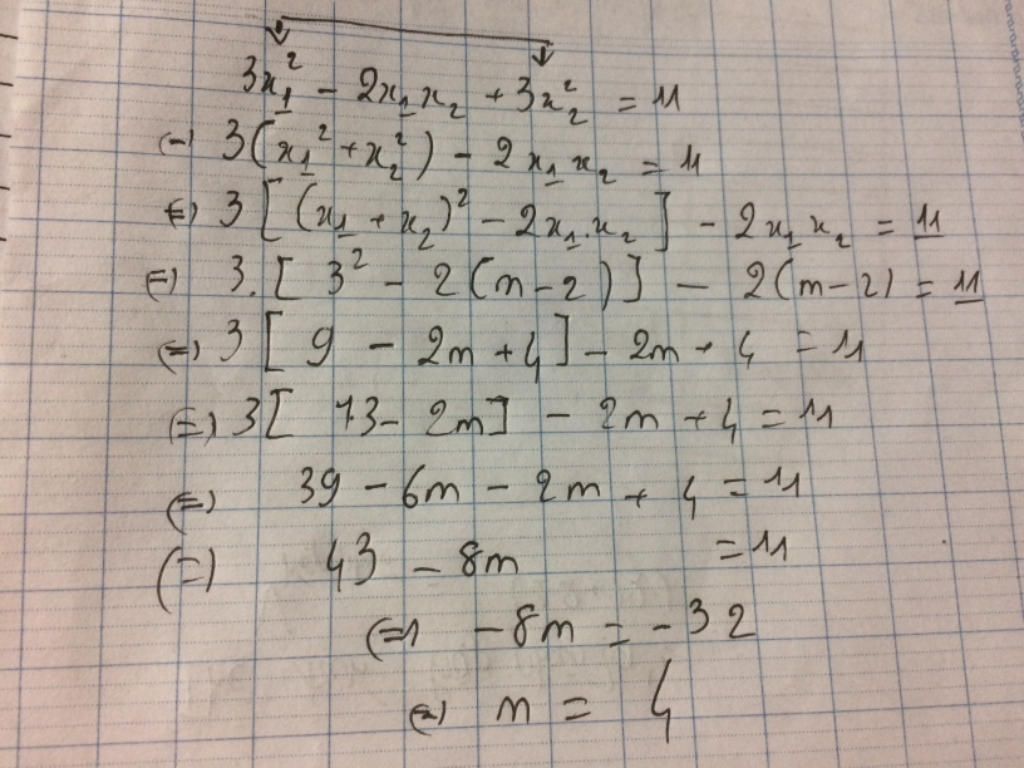 3x₁² - 2x₁x₂ + 3x₂² = 11
(-) 3(x₁² + x₂²) - 2x₁x₂ = 11
(=) 3[(x₁ + x₂)² - 2x₁.x₂] - 2x₁x₂ = 11
(=) 3.[3² - 2(m-2)] - 2(m-2) = 11
(=) 3[9 - 2m + 4] - 2m + 4 = 11
(=) 3[13 - 2m] - 2m + 4 = 11
(=) 39 - 6m - 2m + 4 = 11
(=) 43 - 8m = 11
(=) -8m = -32
(=) m = 4